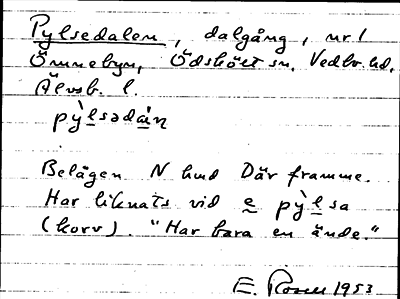 Pylsedalen, dalgång, nr. 1
Ömmebyn, Ödskölt sn. Vedbo hd.
Älvsb. l.
pỳlsədàn
Belägen N hund Där framme.
Har liknats vid e pỳlsa
(korv). "Har bara en ände."
E. Rosell 1953